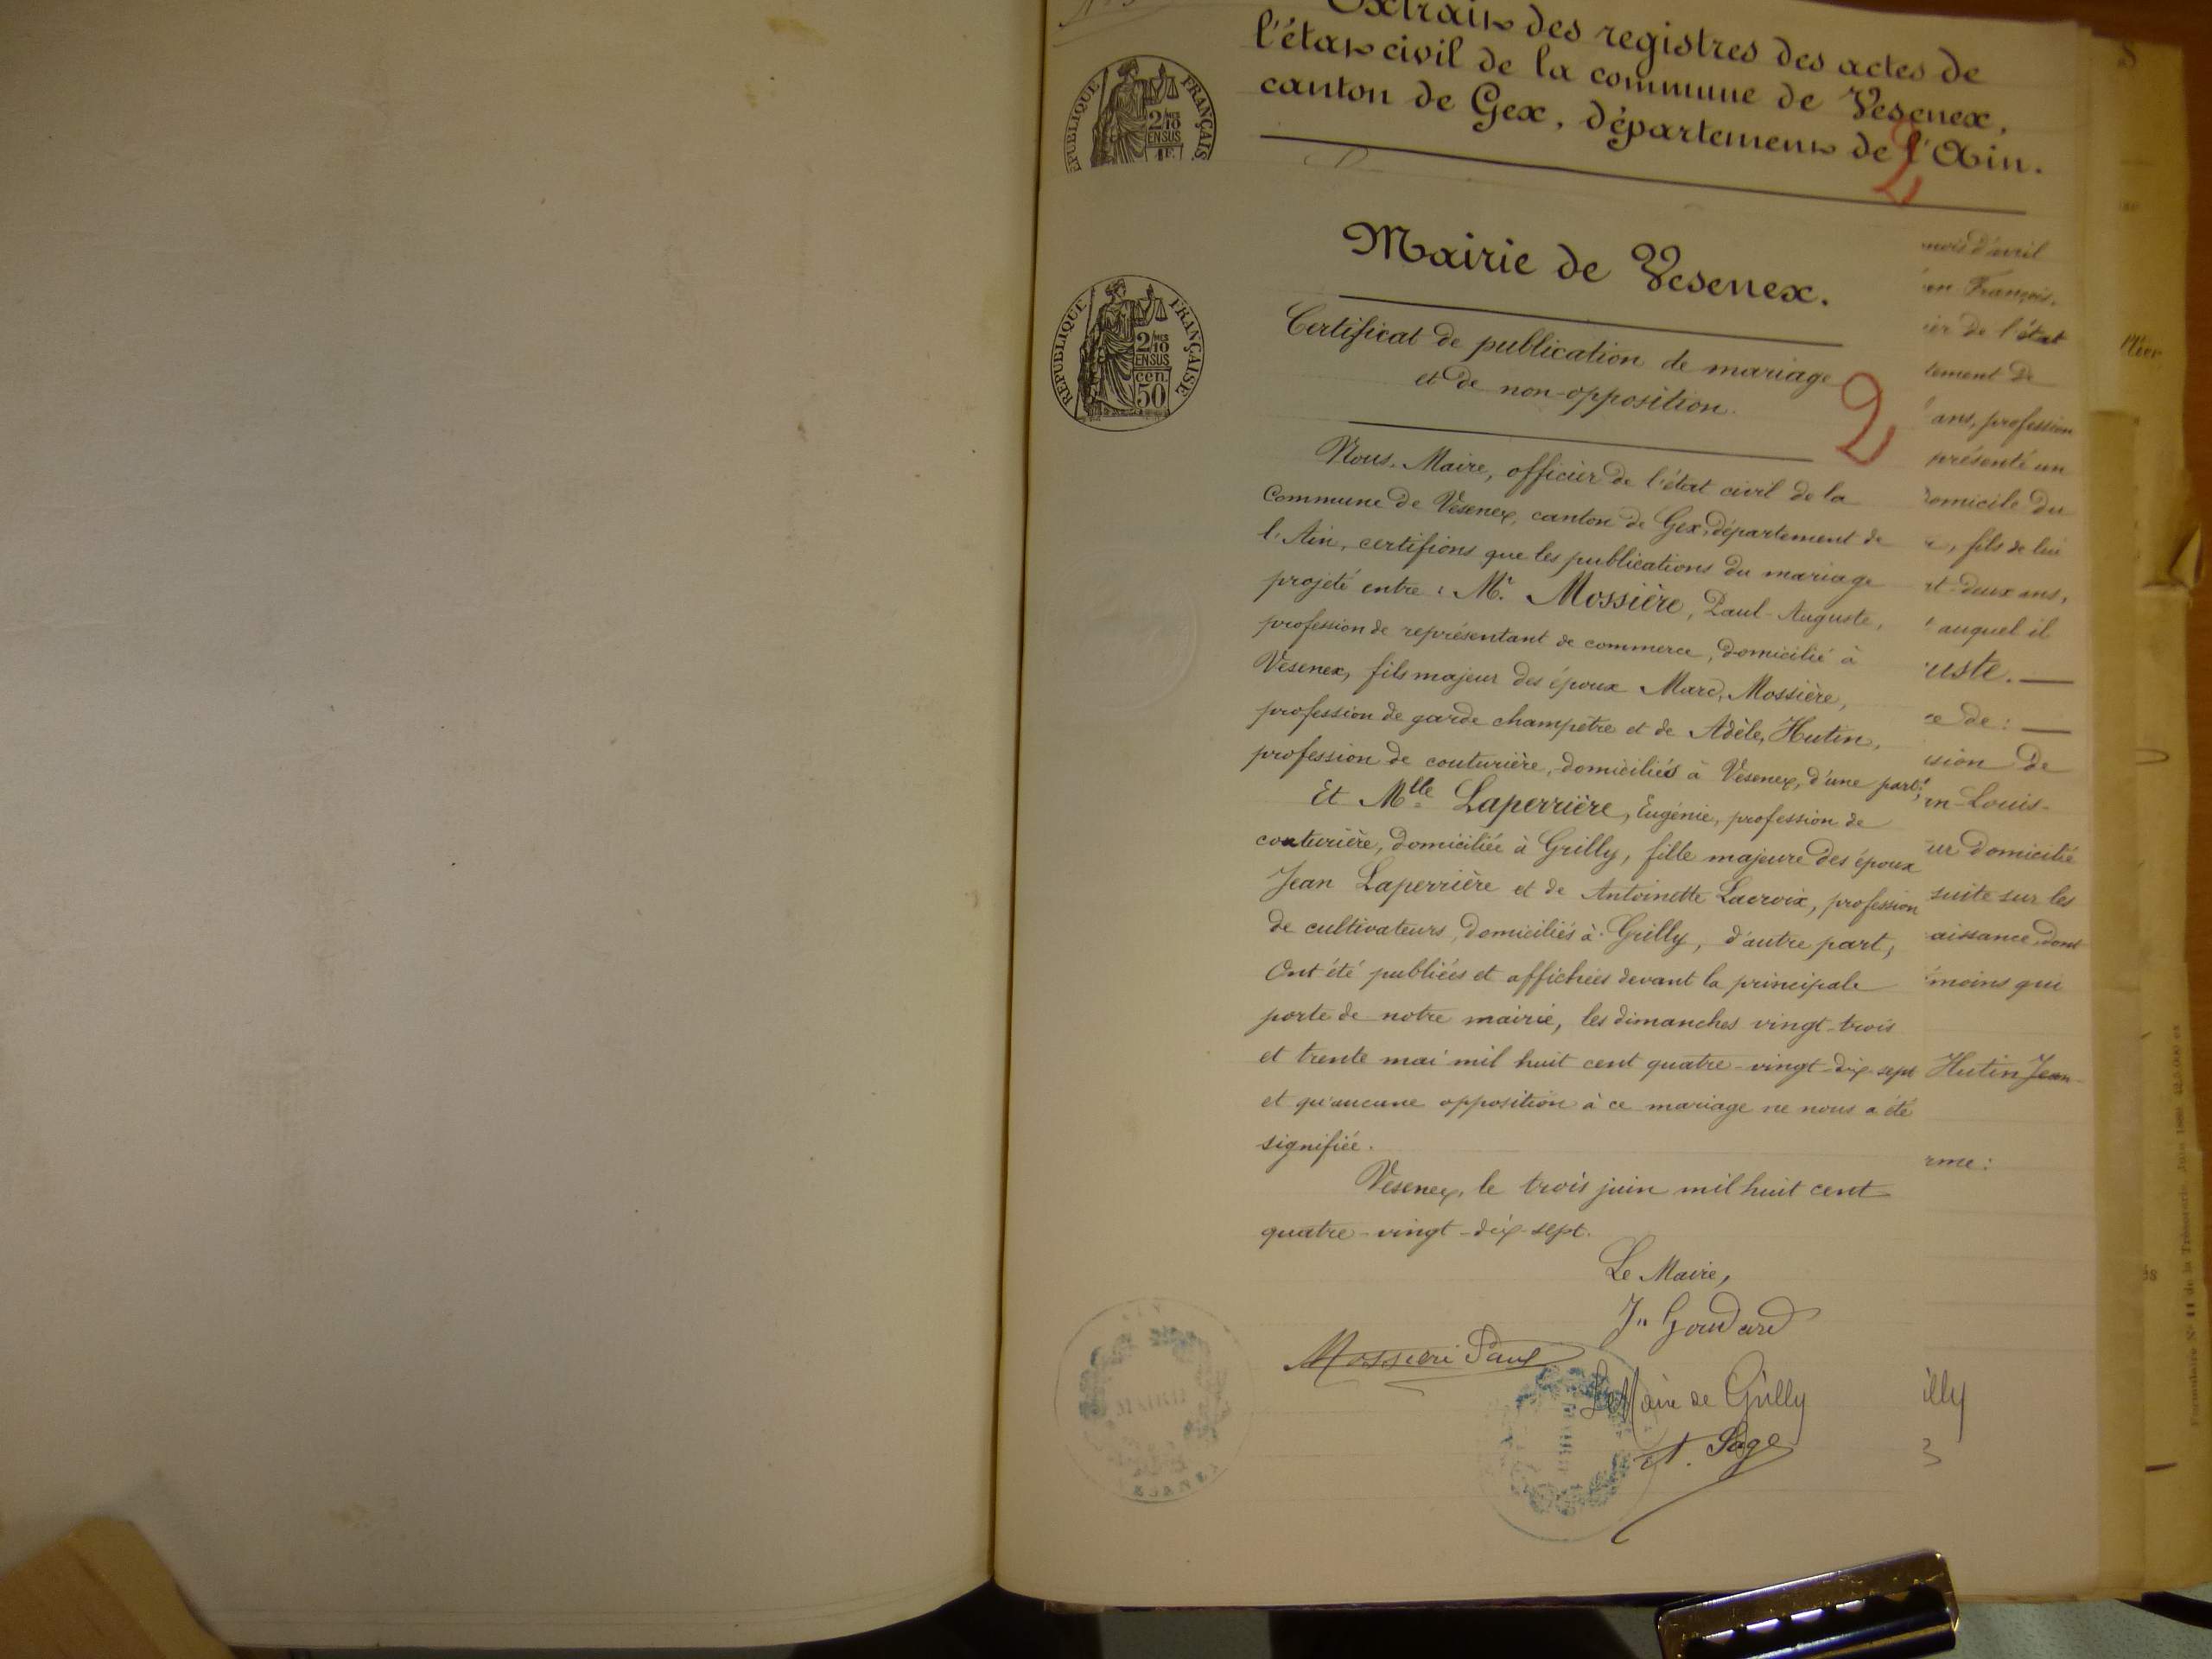 Extrait des registres des actes de
l'état civil de la commune de Vesenex,
canton de Gex, département de l'Ain.
RÉPUBLIQUE FRANÇAISE
2/10 MES
EN SUS
2
Mairie de Vesenex.
RÉPUBLIQUE FRANÇAISE
2/10 MES
EN SUS
cen.
50
Certificat de publication de mariage
et de non-opposition.
2
Nous, Maire, officier de l'état civil de la
Commune de Vesenex, canton de Gex, département de
l'Ain, certifions que les publications du mariage
projeté entre : Mr. Mossière, Paul-Auguste,
profession de représentant de commerce, domicilié à
Vesenex, fils majeur des époux Marc, Mossière,
profession de garde champêtre et de Adèle, Hutin,
profession de couturière, domiciliés à Vesenex, d'une part;
Et Mlle Laperrière, Eugénie, profession de
couturière, domiciliée à Grilly, fille majeure des époux
Jean Laperrière et de Antoinette Lacroix, profession
de cultivateurs, domiciliés à Grilly, d'autre part,
Ont été publiées et affichées devant la principale
porte de notre mairie, les dimanches vingt-trois
et trente mai mil huit cent quatre-vingt-dix-sept
et qu'aucune opposition à ce mariage ne nous a été
signifiée.
Vesenex, le trois juin mil huit cent
quatre-vingt-dix-sept.
Le Maire,
Jn Goudard
Mossieri Paul
Le Maire de Grilly
A. Sage
MAIRIE
mois d'avril
en François,
ier de l'état
tement de
ans, profession
présenté un
domicile du
, fils de lui
t-deux ans,
auquel il
uste.
ce de :
ssion de
n-Louis-
ur domicilié
suite sur les
aissance, dont
moins qui
Hutin Jean-
rme :
illy